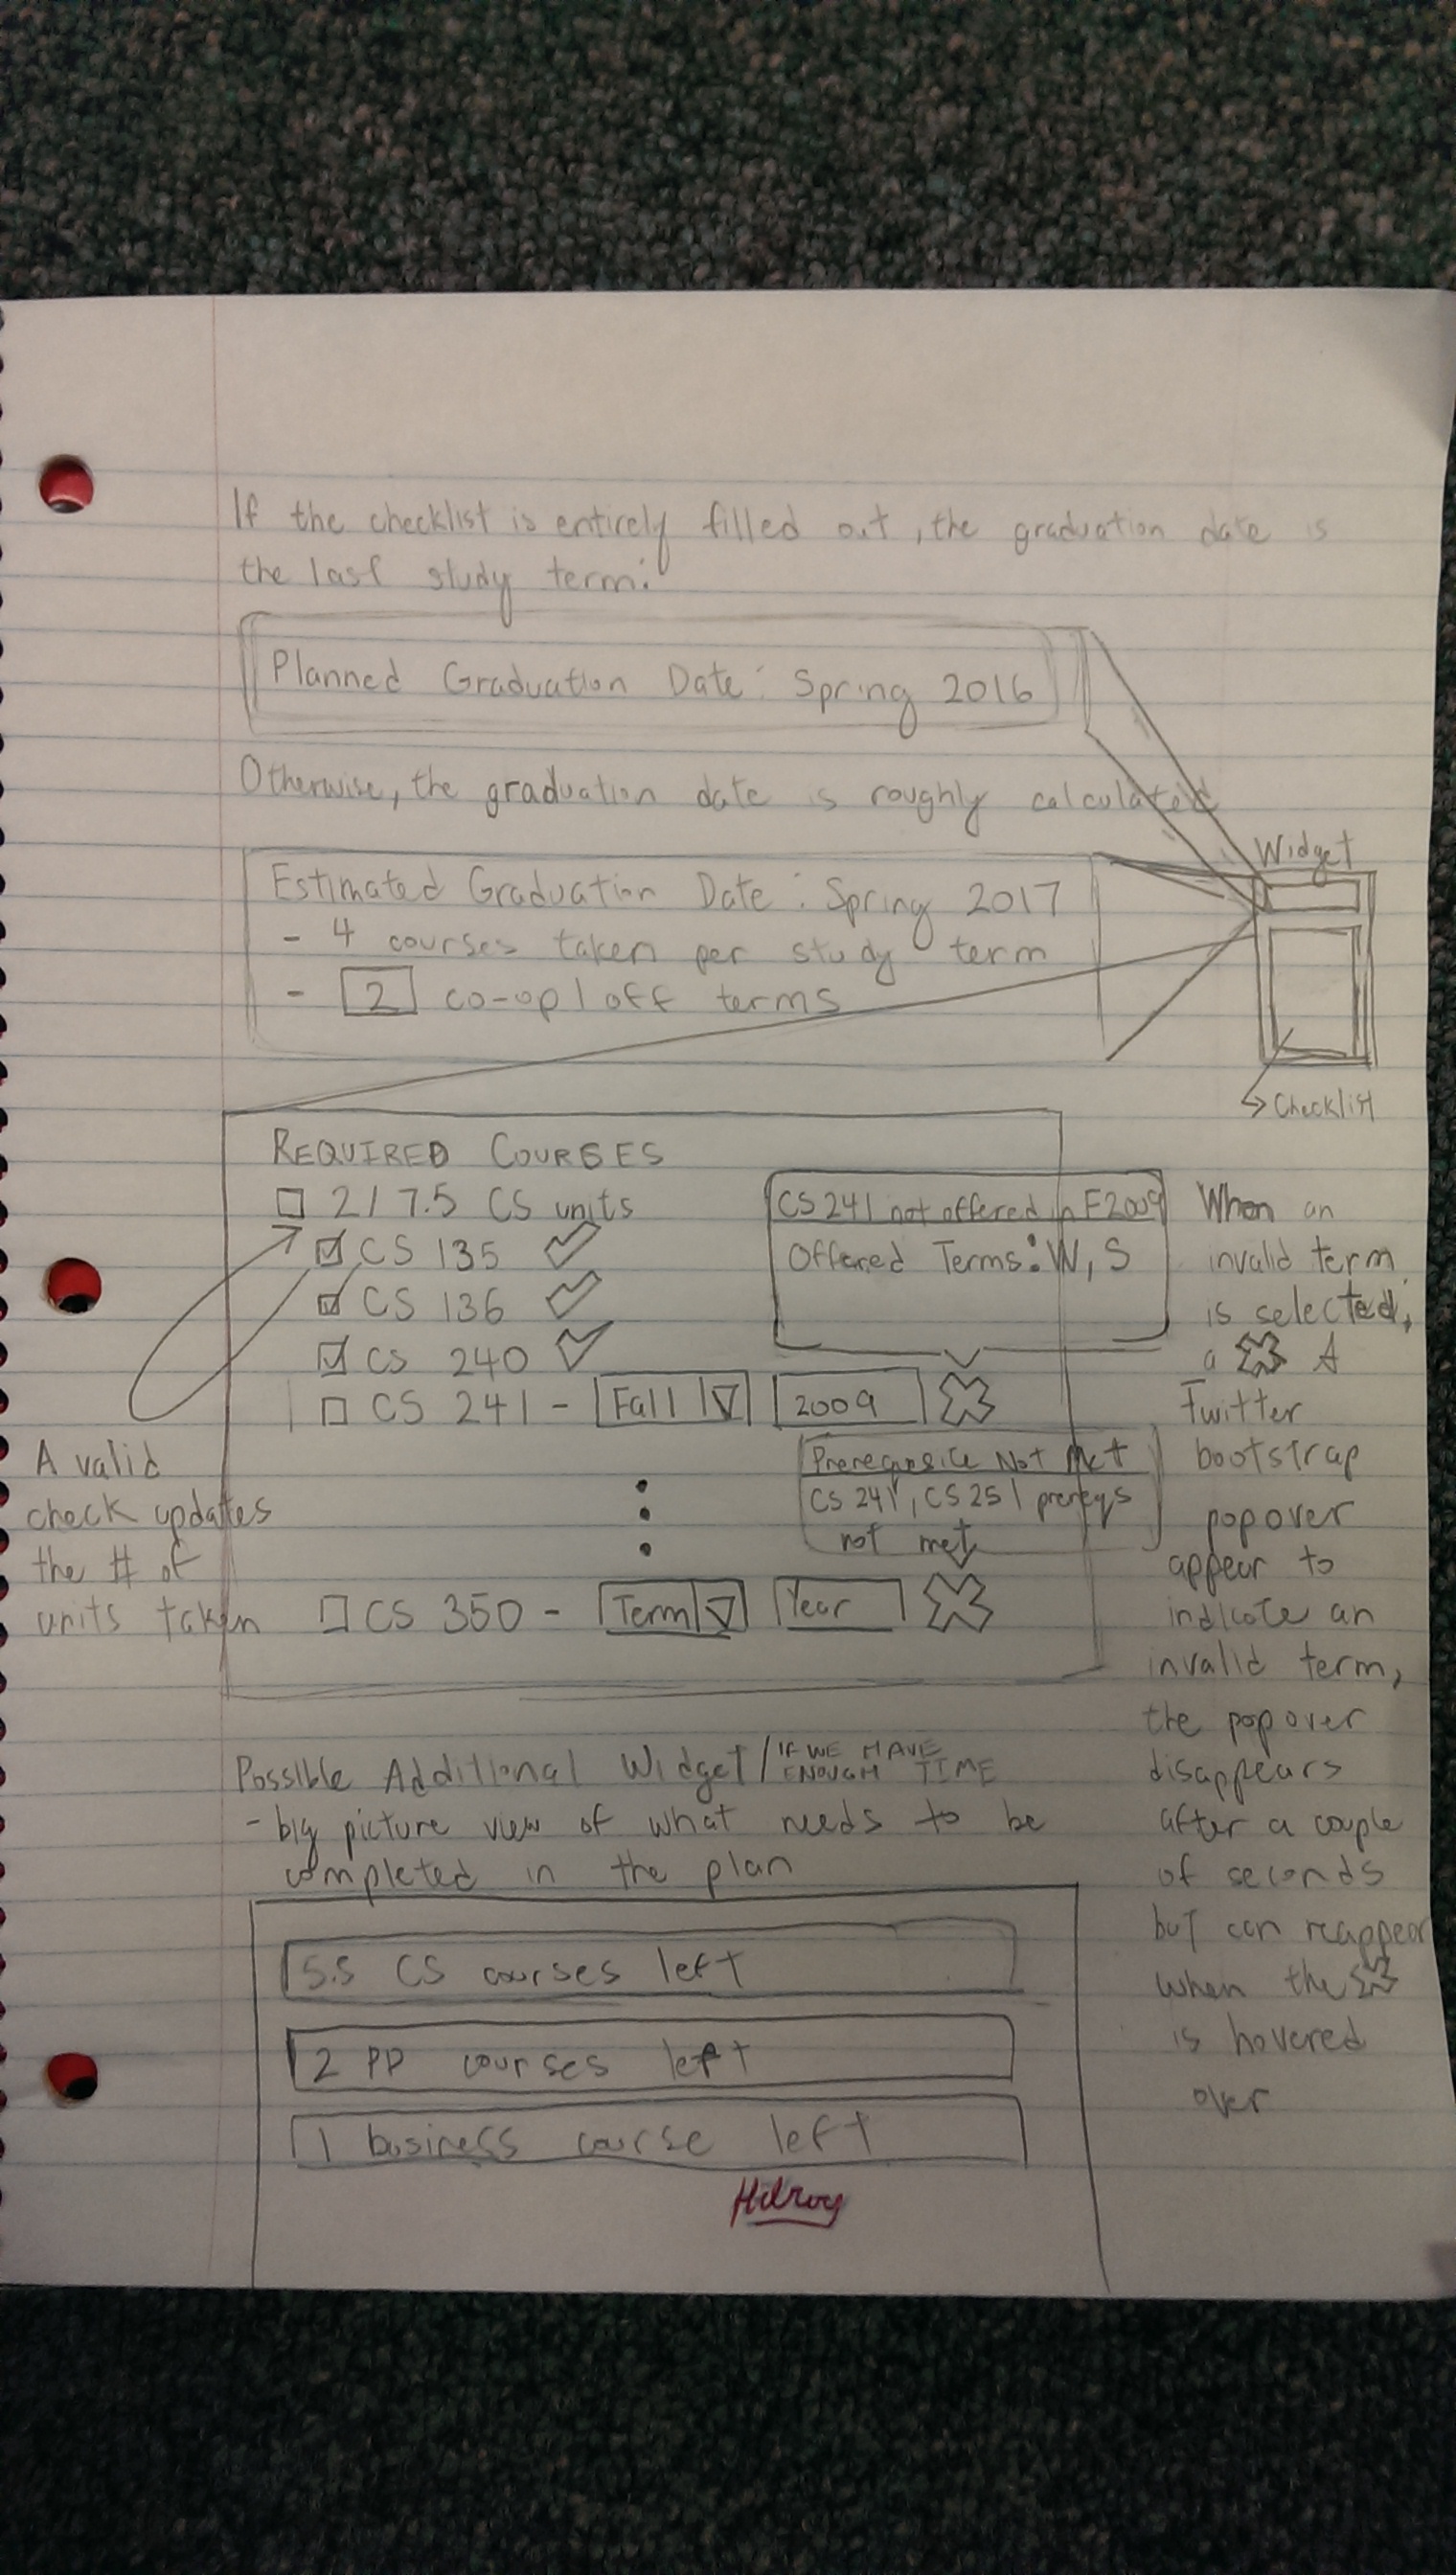 If the checklist is entirely filled out, the graduation date is
the last study term:
Planned Graduation Date: Spring 2016
Otherwise, the graduation date is roughly calculated
Widget
Estimated Graduation Date: Spring 2017
- 4 courses taken per study term
- 2 co-op/off terms
Checklist
REQUIRED COURSES
2/7.5 CS units
CS 135
CS 136
CS 240
CS 241 - Fall 2009
CS 241 not offered in F2009
Offered Terms: W, S
Prerequisite Not Met
CS 241, CS 251 prereqs
not met
CS 350 - Term Year
A valid
check updates
the # of
units taken
When an
invalid term
is selected,
a A
Twitter
bootstrap
popover
appear to
indicate an
invalid term,
the popover
disappears
after a couple
of seconds
but can reappear
when the
is hovered
over
Possible Additional Widget/IF WE HAVE
ENOUGH TIME
- big picture view of what needs to be
completed in the plan
5.5 CS courses left
2 PD courses left
1 business course left
Hilroy